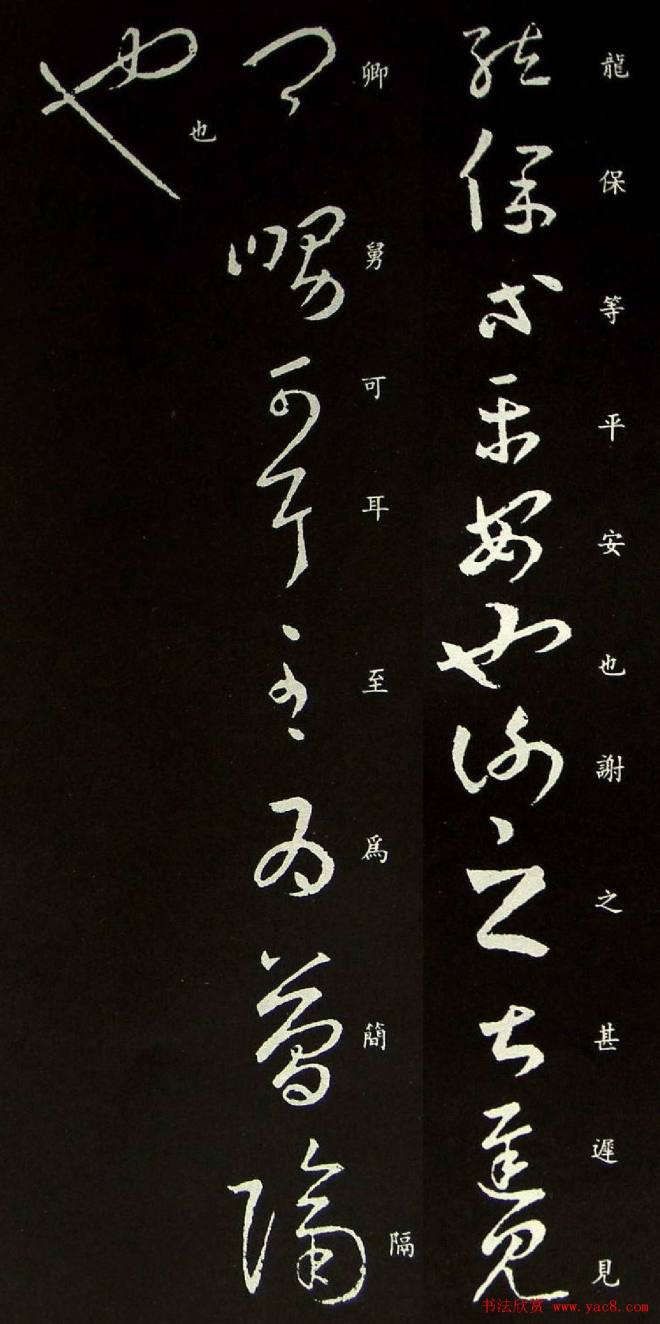 龍保等平安也謝之甚遲見
卿舅可耳至為簡隔
也
书法欣赏 www.yac8.com